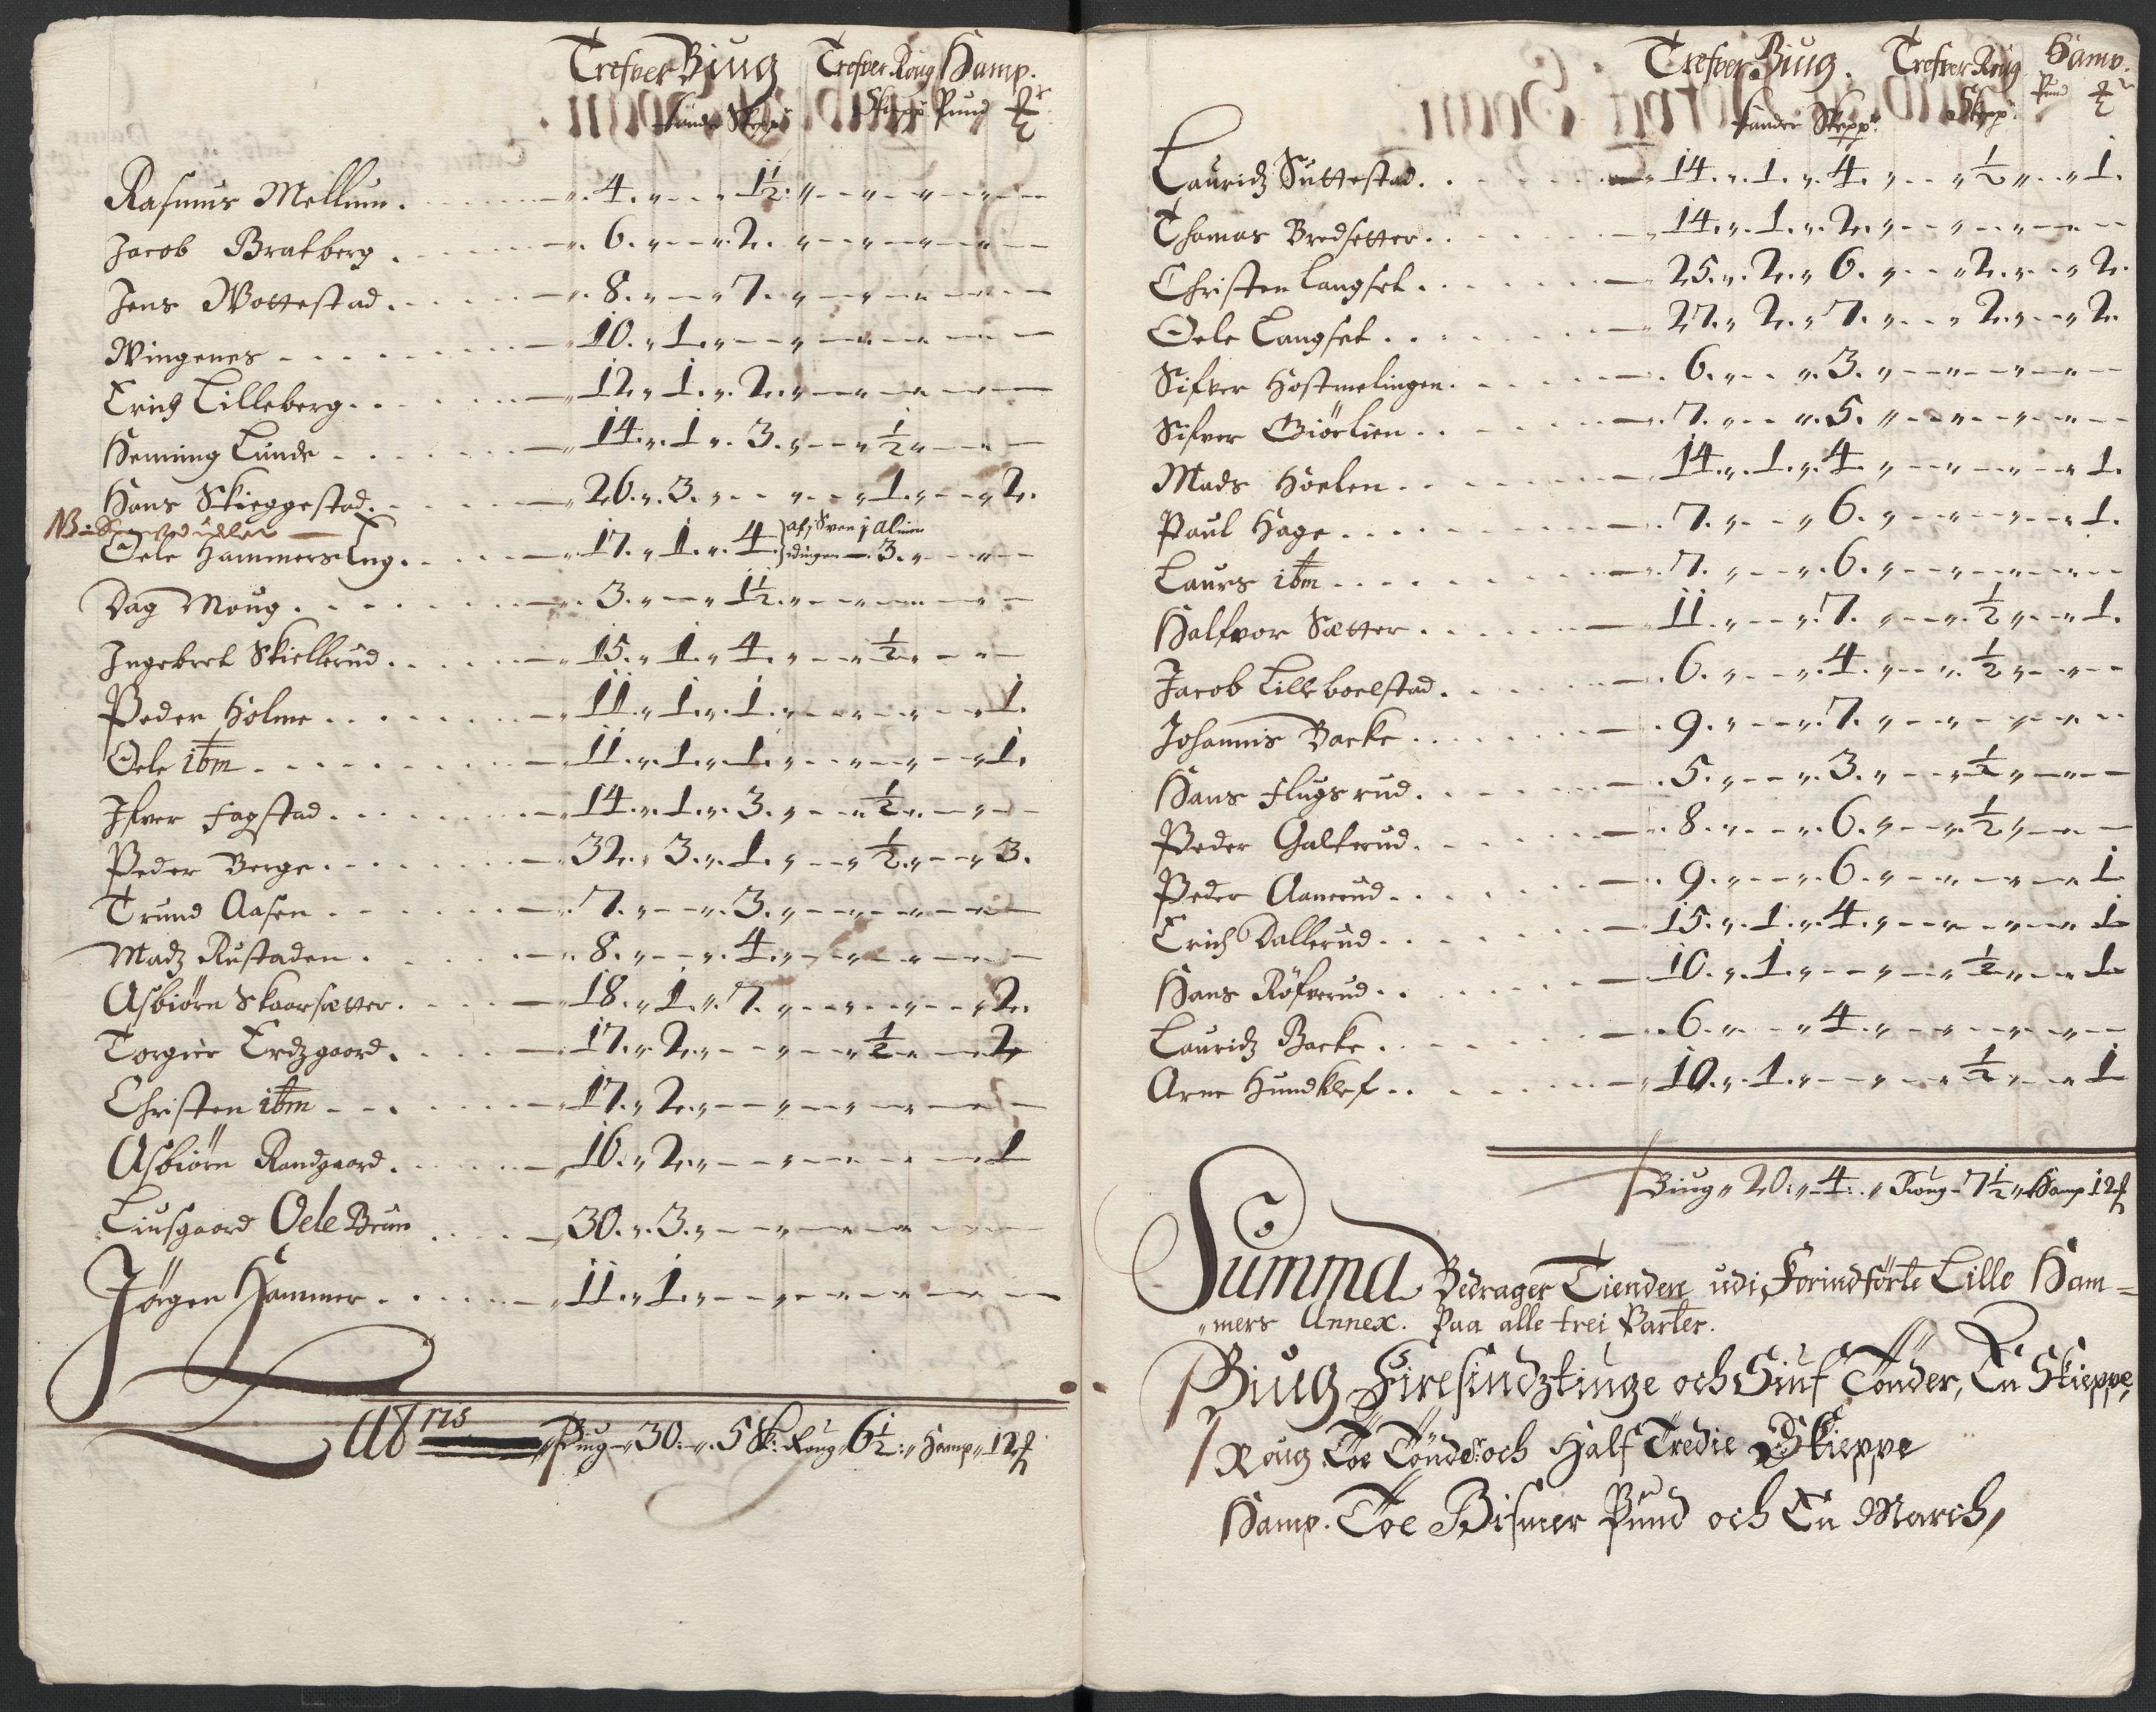 Trefver Biug Trefver Roug Hamp.
Tønder Skepp Skepp Pund
Rasmus Mellum. 4. 1½
Jacob Bratberg. 6. 2.
Jens Wottestad. 8. 7.
Wingenes 10. 1.
Erich Lilleberg. 12. 1. 2.
Henning Lunde 14. 1. 3. ½
Hans Skieggestad. 26. 3. 1. 2.
NB:
Oele HammersEng. 17. 1. 4. af Sven j Alme
dingen 3.
Dag Moug. 3. 1½.
Ingebret Skiellerud. 15. 1. 4. ½
Peder Holme. 11. 1. 1. 1.
Oele ibm 11. 1. 1. 1.
Ifver Fagstad. 14. 1. 3. ½
Peder Berge. 32. 3. 1. ½ 3.
Trund Aasen. 7. 3.
Madz Rustaden. 8. 4.
Asbiörn Skaarsætter. 18. 1. 7. 2.
Torgier Erdzgaard. 17. 2. ½ 2
Christen ibm 17. 2.
Asbiörn Randgaard. 16. 2. 1
Liusgaard Oele Brun 30. 3.
Jörgen Hammer. 11. 1.
Lats Biug 30. 5 Sk: Roug 6½: Hamp 12
Trefver Biug. Trefver Roug Hamp.
Tønder Skepp: Skepp: Pund
Lauridz Suttestad. 14. 1. 4. ½ 1.
Thomas Bredsetter. 14. 1. 2.
Christen Langset. 25. 2. 6. 2. 2.
Oele Langset. 27. 2. 7. 2. 2.
Sifver Hostmelingen. 6. 3.
Sifver Giörlien. 7. 5.
Mads Höelen. 14. 1. 4. 1.
Paul Hage. 7. 6. 1.
Laurs ibm 7. 6.
Halfvor Sætter. 11. 7. ½ 1.
Jacob Lilleboelstad. 6. 4. ½
Johannis Backe. 9. 7.
Hans Flugsrud. 5. 3. ½
Peder Galterud. 8. 6. ½
Peder Aanerud. 9. 6. 1
Erich Dallerud. 15. 1. 4. 1
Hans Röfverud. 10. 1. ½ 1
Lauridz Backe. 6. 4.
Arne Hundklef. 10. 1. ½ 1
Biug 20: 4: Roug 7½ Hamp 12
Summa Bedrager Tienden udi Forindförte Lille Ham=
mers Annex. Paa alle trei Parter.
Biug Firesindztiuge och Siuf Tönder, En Skieppe,
Roug Toe Tönder och Half Tredie Skieppe
Hamp. Toe Bismer Pund och En March,